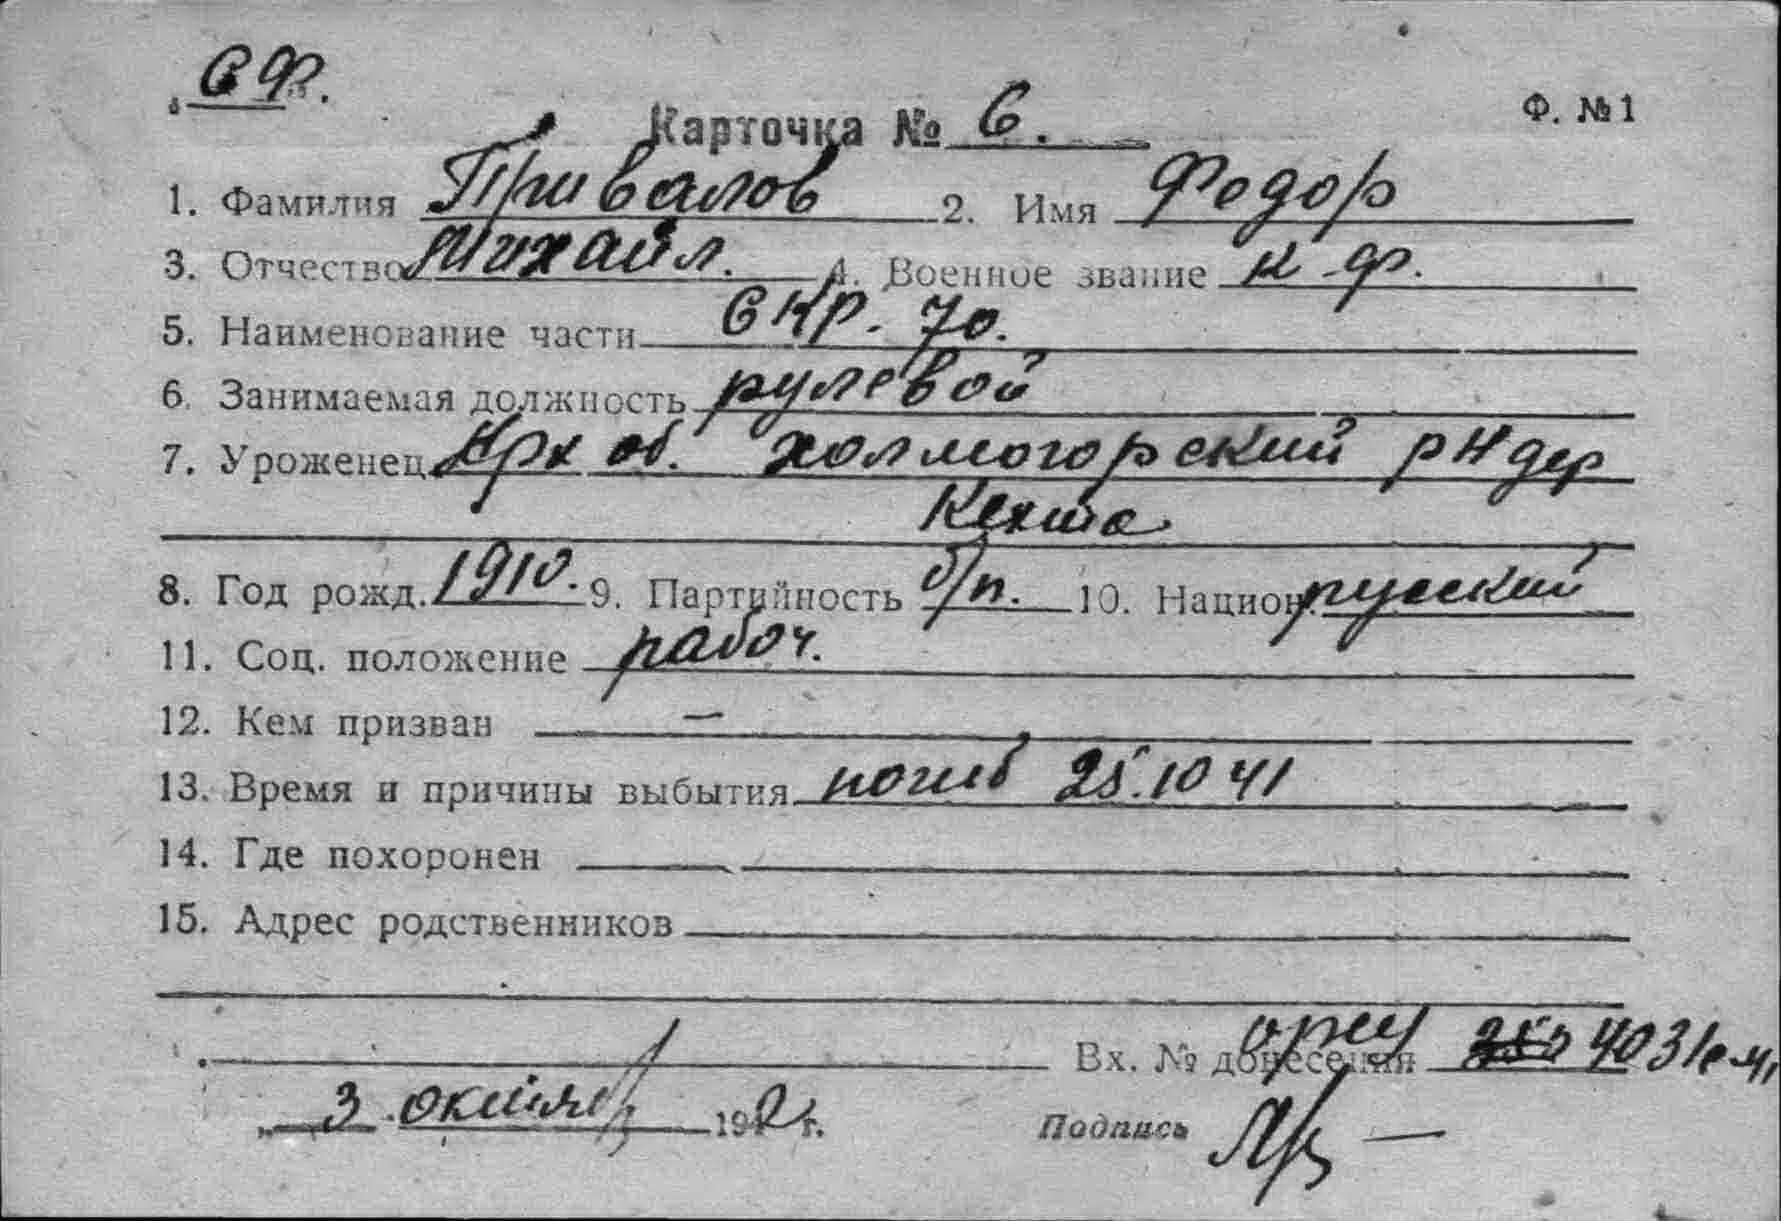 СФ.
Карточка № 6.
Ф. №1
1. Фамилия Привалов 2. Имя Федор
3. Отчество Михайл. 4. Военное звание к-ф.
5. Наименование части СКР. 70.
6. Занимаемая должность рулевой
7. Уроженец Арх об. холмогорский рн дер
Кехта
8. Год рожд. 1910. 9. Партийность б/п. 10. Национ. русский
11. Соц. положение рабоч.
12. Кем призван —
13. Время и причины выбытия погиб 25.10 41
14. Где похоронен
15. Адрес родственников
Вх. № донесения 4031с
„ 3 октября 1942 г.
Подпись